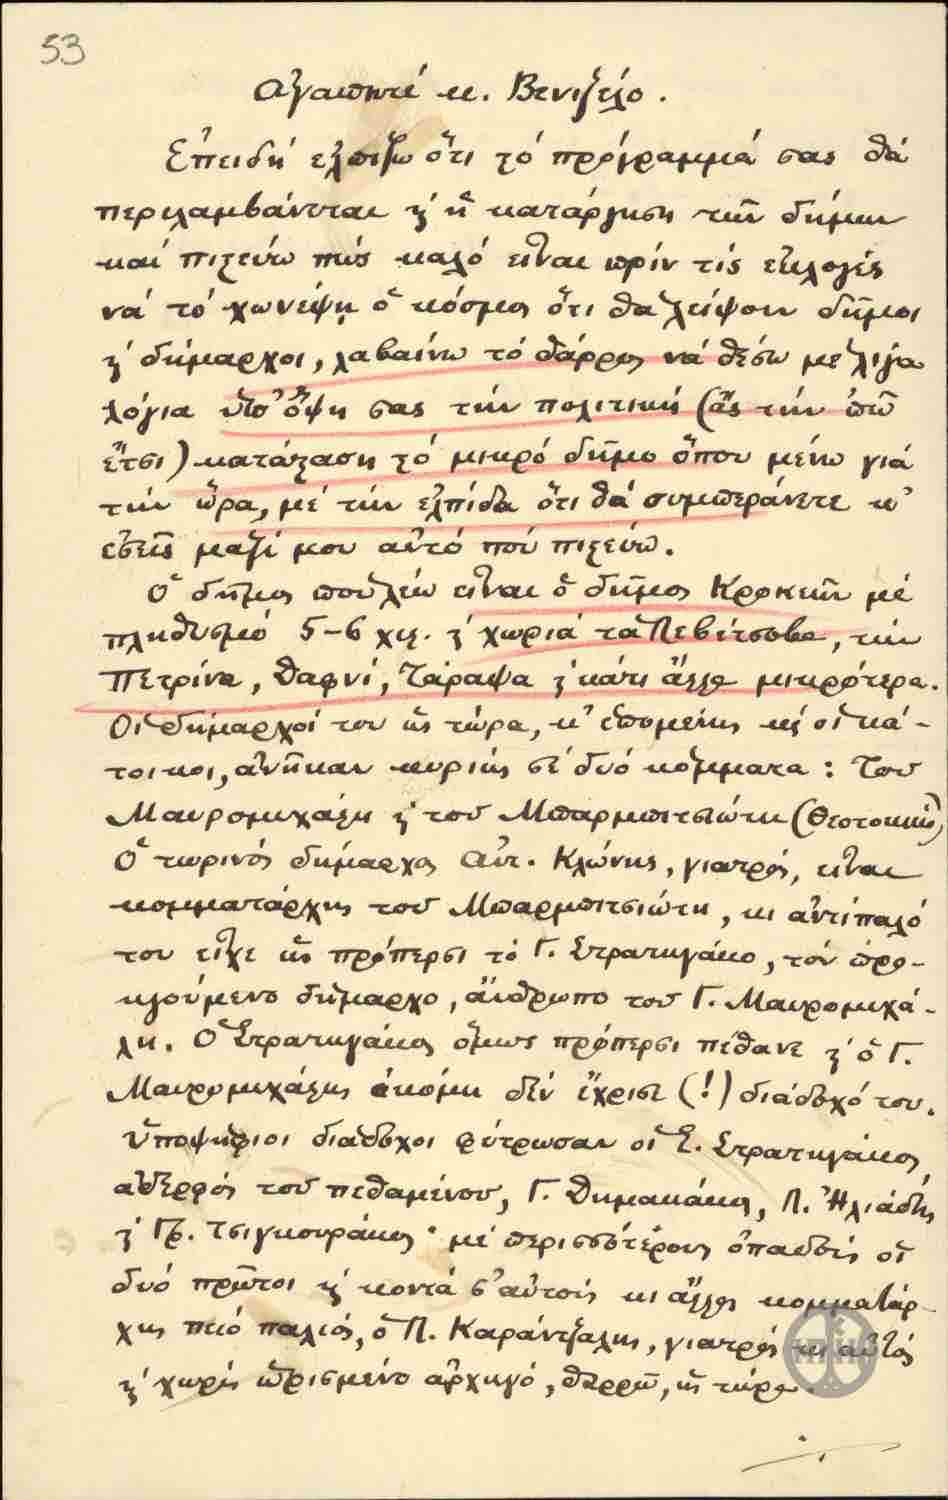 53
Ἀγαπητέ κ. Βενιζέλο.
Ἐπειδή ἐλπίζω ὅτι τό πρόγραμμά σας θά
περιλαμβάνεται κ' ἡ κατάργηση τῶν δήμων
καί πιστεύω πώς καλό εἶναι πρίν τίς ἐκλογές
νά τό χωνέψῃ ὁ κόσμος ὅτι θά λείψουν δῆμοι
κ' δήμαρχοι, λαβαίνω τό θάρρος νά θέσω μέ λίγα
λόγια ὑπ' ὄψη σας τήν πολιτική (ἄς τήν πῶ
ἔτσι) κατάσταση τό μικρό δῆμο ὅπου μένω γιά
τήν ὥρα, μέ τήν ἐλπίδα ὅτι θά συμπεράνετε κ'
ἐσεῖς μαζί μου αὐτό πού πιστεύω.
Ὁ δῆμος πού λέω εἶναι ὁ δῆμος Κροκεῶν μέ
πληθυσμό 5-6 χιλ. κ' χωριά τά Λεβέτσοβα, τήν
Πετρίνα, Δαφνί, Τάραψα κ' κάτι ἄλλα μικρότερα.
Οἱ δήμαρχοί του ὥς τώρα, κ' ἑπομένως κι οἱ κά-
τοικοι, ἀνῆκαν κυρίως σέ δυό κόμματα: Τοῦ
Μαυρομιχάλη κ' τοῦ Μπαρμπιτσιώτη (Θεοτοκικό)
Ὁ τωρινός δήμαρχος Ἀντ. Κλώνης, γιατρός, εἶναι
κομματάρχης τοῦ Μπαρμπιτσιώτη, κι ἀντίπαλό
του εἶχε ὥς πρόπερσι τό Γ. Στρατηγάκο, τόν προ-
ηγούμενο δήμαρχο, ἄνθρωπο τοῦ Γ. Μαυρομιχά-
λη. Ὁ Στρατηγάκος ὅμως πρόπερσι πέθανε κ' ὁ Γ.
Μαυρομιχάλης ἀκόμη δέν ἔχρισε (!) διάδοχό του.
Ὑποψήφιοι διάδοχοι φύτρωσαν οἱ Σ. Στρατηγάκος,
ἀδερφός τοῦ πεθαμένου, Γ. Δημακάκος, Π. Ἠλιάδης
κ' Γρ. Τσιγκουράκος· μέ περισσότερους ὀπαδούς οἱ
δυό πρῶτοι κ' κοντά σ' αὐτούς κι ἄλλος κομματάρ-
χης πιό παλιός, ὁ Π. Καράντζαλης, γιατρός κι αὐτός
κ' χωρίς ὡρισμένο ἀρχηγό, θαρρῶ, ὥς τώρα.